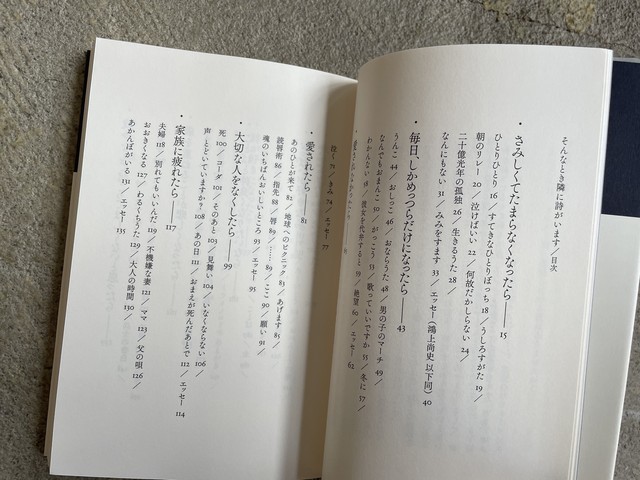 そんなとき隣に詩がいます／目次
・さみしくてたまらなくなったら——15
ひとりひとり 16／すてきなひとりぼっち 18／うしろすがた 19／
朝のリレー 20／泣けばいい 22／何故だかしらない 24／
二十億光年の孤独 26／生きるうた 28／
なんにもない 31／みみをすます 33／エッセー（鴻上尚史 以下同） 40
・毎日、しかめっつらだけになったら——43
うんこ 44／おしっこ 46／おならうた 48／男の子のマーチ 49／
なんでもおまんこ 50／がっこう 53／歌っていいですか 55／冬に 57／
わかんない 58／彼女を代弁すると 59／絶望 60／エッセー 62
泣く 73／きみ 74／エッセー 77
・愛されたら——81
あのひとが来て 82／地球へのピクニック 83／あげます 85／
読唇術 86／指先 88／唇 89／…… 89／ここ 90／願い 91／
魂のいちばんおいしいところ 93／エッセー 95
・大切な人をなくしたら——99
死 100／コーダ 101／そのあと 103／見舞い 104／いなくならない 106／
声 とどいていますか? 108／あの日 111／おまえが死んだあとで 112／エッセー 114
・家族に疲れたら——117
夫婦 118／別れてもいいんだ 119／不機嫌な妻 121／ママ 123／父の唄 126／
おおきくなる 127／わるくちうた 129／大人の時間 130／
あかんぼがいる 131／エッセー 135